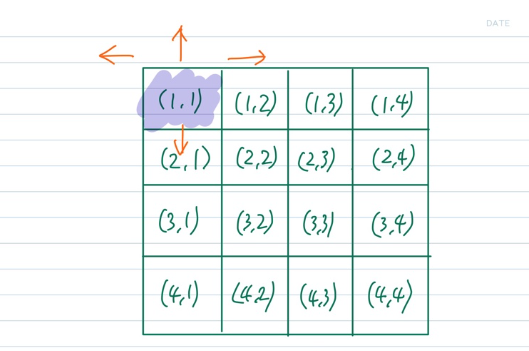 DATE
(1,1) (1,2) (1,3) (1,4)
(2,1) (2,2) (2,3) (2,4)
(3,1) (3,2) (3,3) (3,4)
(4,1) (4,2) (4,3) (4,4)